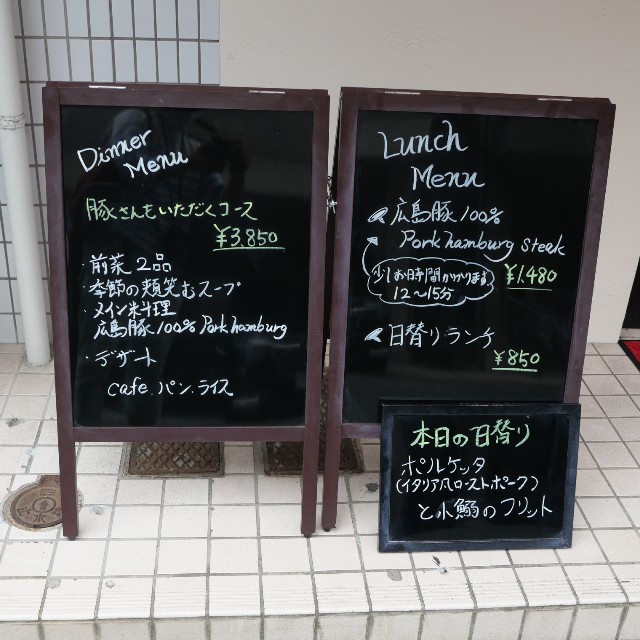 Dinner
Menu
豚さんをいただくコース
¥3,850
・前菜 2品
・季節の頬笑むスープ
・メイン料理
広島豚100% Pork hamburg
・デザート
cafe.パン.ライス
Lunch
Menu
広島豚100%
Pork hamburg steak
¥1,480
少しお時間かかります
12〜15分
日替りランチ
¥850
本日の日替り
ポルケッタ
(イタリア風ローストポーク)
と小鰯のフリット